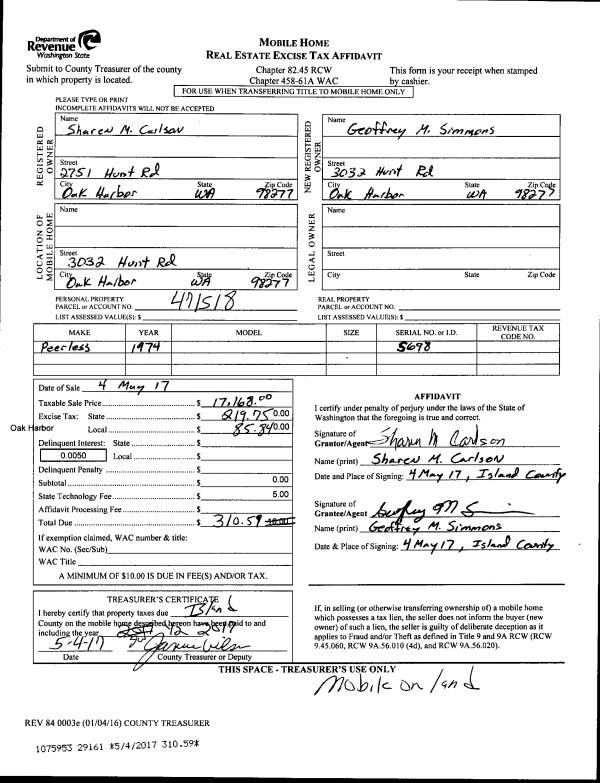 Department of
Revenue
Washington State
MOBILE HOME
REAL ESTATE EXCISE TAX AFFIDAVIT
Submit to County Treasurer of the county
in which property is located.
Chapter 82.45 RCW
Chapter 458-61A WAC
This form is your receipt when stamped
by cashier.
FOR USE WHEN TRANSFERRING TITLE TO MOBILE HOME ONLY
PLEASE TYPE OR PRINT
INCOMPLETE AFFIDAVITS WILL NOT BE ACCEPTED
REGISTERED OWNER
Name
Sharen M. Carlson
Street
2751 Hunt Rd
City State Zip Code
Oak Harbor WA 98277
NEW REGISTERED OWNER
Name
Geoffrey M. Simmons
Street
3032 Hunt Rd
City State Zip Code
Oak Harbor WA 98277
LOCATION OF MOBILE HOME
Name
Street
3032 Hunt Rd
City State Zip Code
Oak Harbor WA 98277
LEGAL OWNER
Name
Street
City State Zip Code
PERSONAL PROPERTY
PARCEL or ACCOUNT NO. 471518
LIST ASSESSED VALUE(S): $
REAL PROPERTY
PARCEL or ACCOUNT NO.
LIST ASSESSED VALUE(S): $
MAKE YEAR MODEL SIZE SERIAL NO. or I.D. REVENUE TAX CODE NO.
Peerless 1974 5698
Date of Sale 4 May 17
Taxable Sale Price $ 17,168.00
Excise Tax: State $ 219.75 0.00
Oak Harbor Local $ 85.84 0.00
Delinquent Interest: State $
0.0050 Local $
Delinquent Penalty $
Subtotal $ 0.00
State Technology Fee $ 5.00
Affidavit Processing Fee $
Total Due $ 310.59 10.00
If exemption claimed, WAC number & title:
WAC No. (Sec/Sub)
WAC Title
A MINIMUM OF $10.00 IS DUE IN FEE(S) AND/OR TAX.
AFFIDAVIT
I certify under penalty of perjury under the laws of the State of
Washington that the foregoing is true and correct.
Signature of
Grantor/Agent Sharen M Carlson
Name (print) Sharen M. Carlson
Date and Place of Signing: 4 May 17, Island County
Signature of
Grantee/Agent
Name (print) Geoffrey M. Simmons
Date & Place of Signing: 4 May 17, Island County
TREASURER'S CERTIFICATE
I hereby certify that property taxes due Island
County on the mobile home described hereon have been paid to and
including the year 2017
5-4-17
Date County Treasurer or Deputy
If, in selling (or otherwise transferring ownership of) a mobile home
which possesses a tax lien, the seller does not inform the buyer (new
owner) of such a lien, the seller is guilty of deliberate deception as it
applies to Fraud and/or Theft as defined in Title 9 and 9A RCW (RCW
9.45.060, RCW 9A.56.010 (4d), and RCW 9A.56.020).
THIS SPACE - TREASURER'S USE ONLY
Mobile on land
REV 84 0003e (01/04/16) COUNTY TREASURER
1075953 29161 *5/4/2017 310.59*